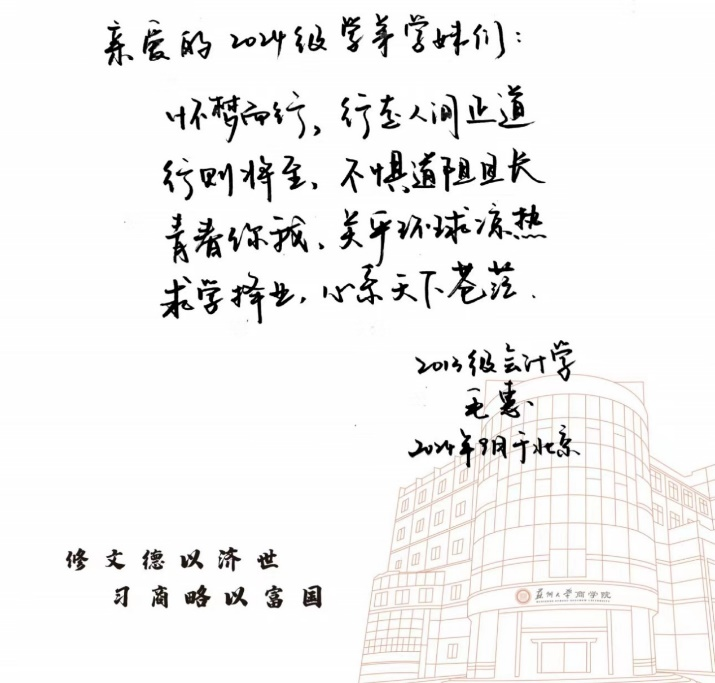 亲爱的2024级学弟学妹们:
怀梦而行,行在人间正道
行则将至,不惧道阻且长
青春你我、关乎环球凉热
求学择业,心系天下苍茫.
2013级会计学
毛惠
2024年9月于北京
修文德以济世
习商略以富国
苏州大学商学院